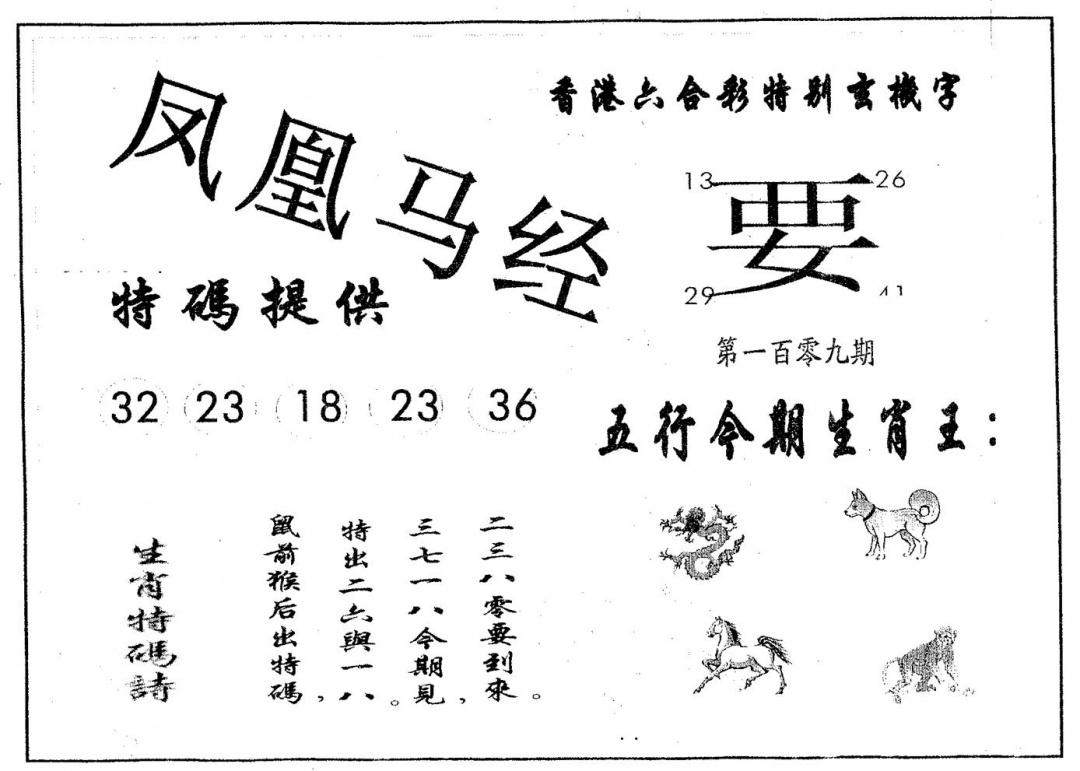 凤凰马经
香港六合彩特别玄機字
13 26
要
29 41
特碼提供
第一百零九期
32 23 18 23 36
五行今期生肖王：
生肖特碼詩
鼠前猴后出特碼，
特出二六與一八。
三七一八今期見，
二三八零要到來。